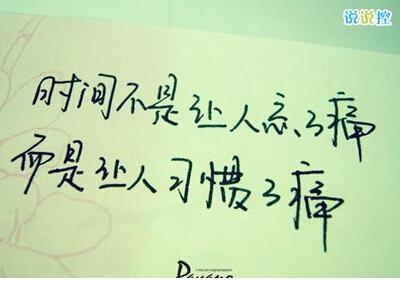 说说控
时间不是让人忘了痛
而是让人习惯了痛